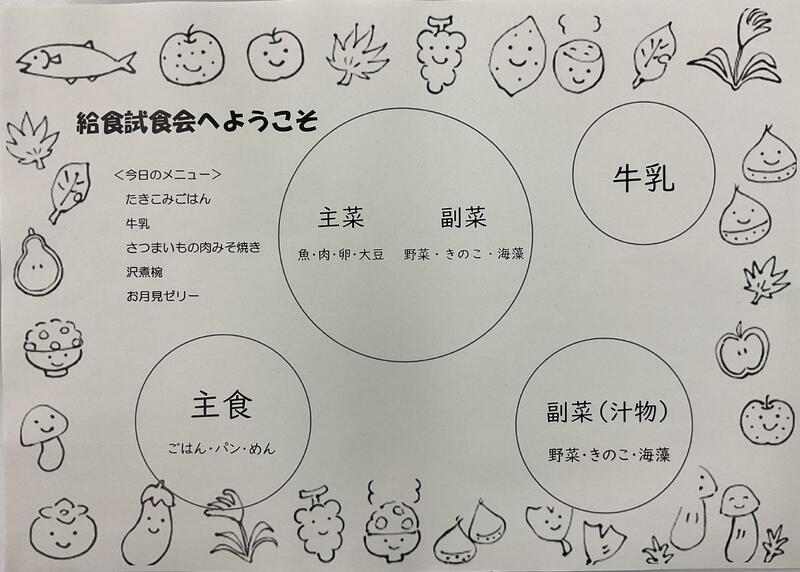 給食試食会へようこそ
＜今日のメニュー＞
たきこみごはん
牛乳
さつまいもの肉みそ焼き
沢煮椀
お月見ゼリー
主菜
魚・肉・卵・大豆
副菜
野菜・きのこ・海藻
牛乳
主食
ごはん・パン・めん
副菜（汁物）
野菜・きのこ・海藻